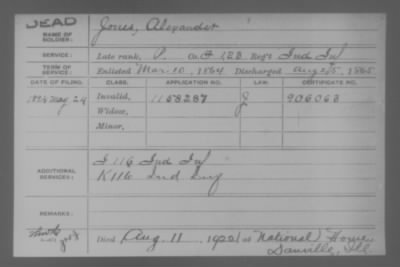 DEAD
NAME OF SOLDIER: Jones, Alexander
SERVICE: Late rank, P. Co. 123 Reg't Ind Inf
TERM OF SERVICE: Enlisted Mar. 10, 1864 Discharged Aug 25, 1865
DATE OF FILING. CLASS. APPLICATION NO. LAW. CERTIFICATE NO.
May 24 Invalid, 1158287 906068
Widow,
Minor,
ADDITIONAL SERVICES: I 116 Ind Inf
K 116 Ind Inf
REMARKS:
Died Aug. 11 at National Home
Danville, Ill.